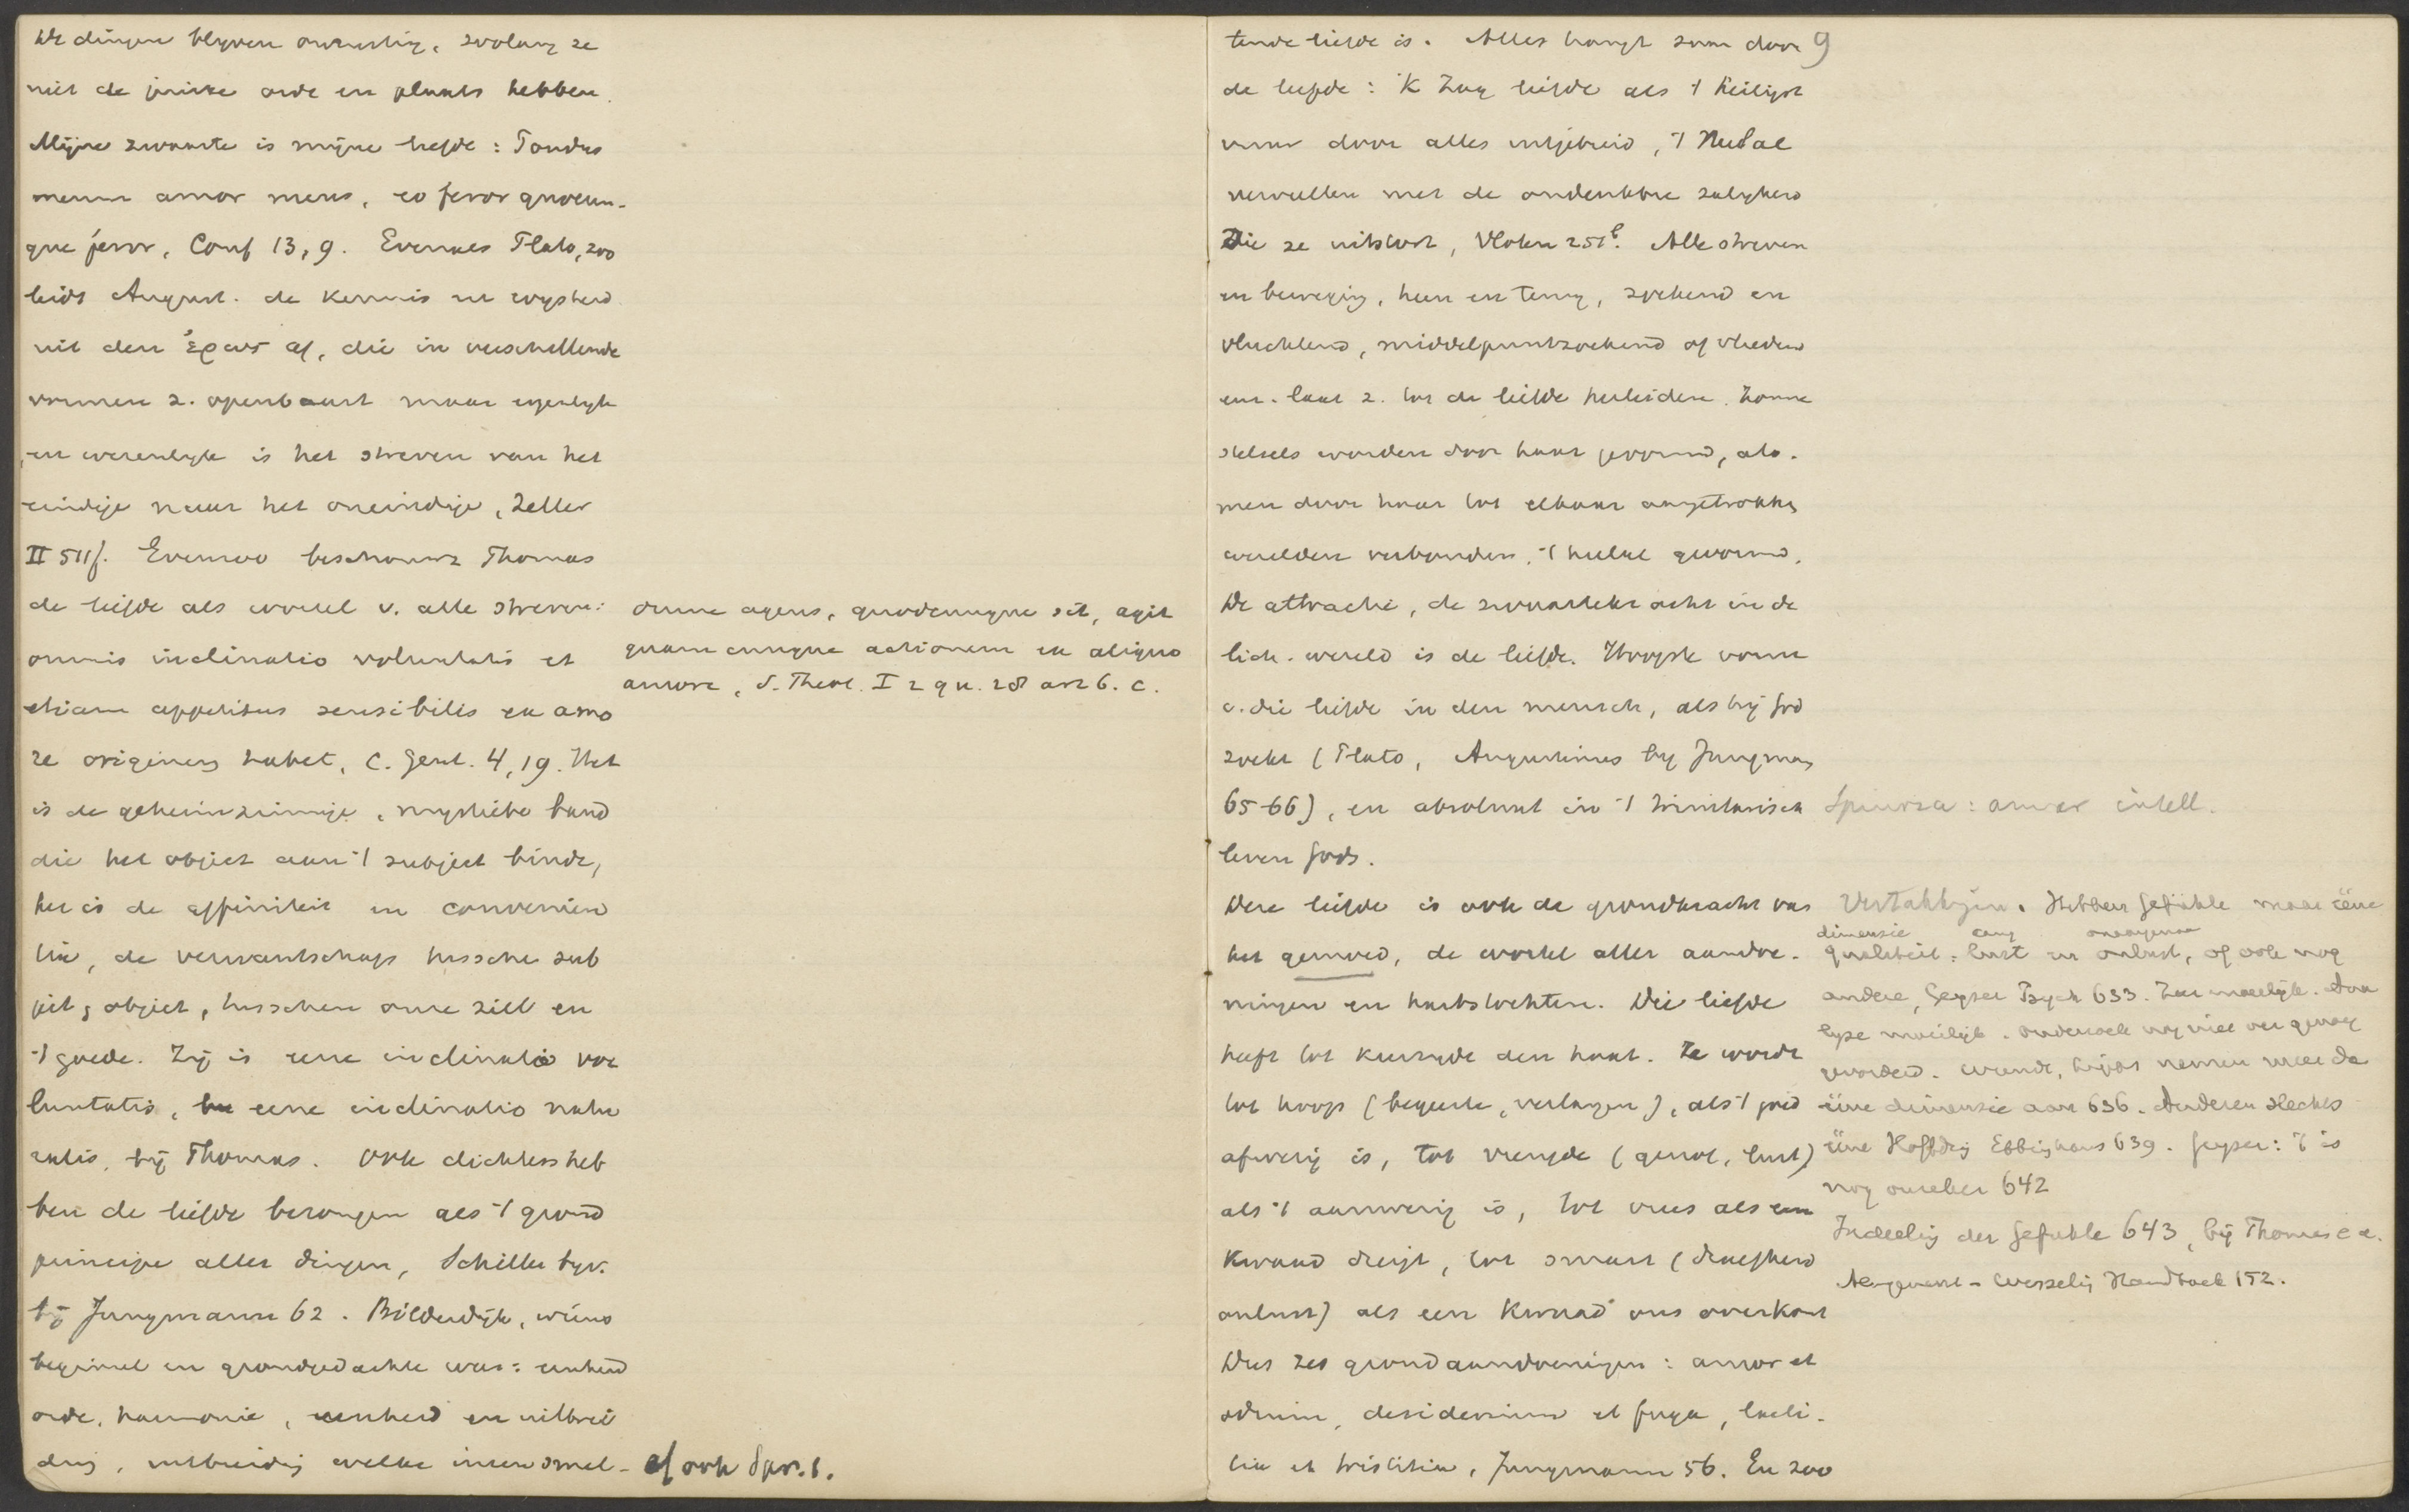 De dingen blijven onrustig, zoolang ze
niet de juiste orde en plaats hebben.
Mijne zwaarte is mijne liefde: Pondus
meum amor meus, eo feror quocun-
que feror, Conf 13,9. Evenals Plato, zoo
leidt August. de kennis en wijsheid
uit den ἔρως af, die in verschillende
vormen z. openbaart maar eigenlijk
en wezenlijk is het streven van het
eindige naar het oneindige, Zeller
II 511f. Evenzoo beschouwt Thomas
de liefde als wortel v. alle streven:
omnis inclinatio voluntatis et
etiam appetitus sensibilis ex amo
re originem habet, C. Gent. 4,19. Het
is de geheimzinnige, mystieke band
die het object aan 't subject bindt,
het is de affiniteit en convenien
tie, de verwantschap tusschen sub
ject, object, tusschen onze ziel en
't goede. Zij is eene inclinatio vo
luntatis, eene inclinatio natu
ralis, bij Thomas. Ook dichters heb
ben de liefde bezongen als 't grond
principe aller dingen, Schiller bijv.
bij Jungmann 62. Bilderdijk, wiens
beginsel en grondgedachte was: eenheid
orde, harmonie, eenheid en uitbrei
ding, uitbreiding welke ineensmel-
omne agens, quodcumque sit, agit
quamcunque actionem ex aliquo
amore, S. Theol. I 2 qu. 28 art 6. c.
cf ook Spr. 8.
9
tende liefde is. Alles hangt zaam door
de liefde: 'K Zag liefde als 't heiligst
vuur door alles uitgebreid, 't Heelal
vervullen met de ondenkbre zaligheid
Die ze uitstort, Vloten 251b. Alle streven
en beweging, heen en terug, zoekend en
vluchtend, middelpuntzoekend of vliedend
enz. laat z. tot de liefde herleiden. Zonne
stelsels worden door haar gevormd, ato-
men door haar tot elkaar aangetrokken
werelden verbonden, 't heelal gevormd.
De attractie, de zwaartekracht in de
lich. wereld is de liefde. Hoogste vorm
v. die liefde in den mensch, als hij God
zoekt (Plato, Augustinus bij Jungman
65-66), en absoluut in 't trinitarisch
leven Gods.
Deze liefde is ook de grondkracht van
het gemoed, de wortel aller aandoe-
ningen en hartstochten. Die liefde
heeft tot keerzijde den haat. Ze wordt
tot hoop (begeerte, verlangen), als 't goed
afwezig is, tot vreugde (genot, lust)
als 't aanwezig is, tot vrees als een
kwaad dreigt, tot smart (droefheid
onlust) als een kwaad ons overkomt
Dus zes grondaandoeningen: amor et
odium, desiderium et fuga, laeti-
tia et tristitia, Jungmann 56. En zoo
Spinoza: amor intell.
Vertakkingen. Hebben Gefühle maar ééne
dimensie onaangenaam
qualiteit: lust en onlust, of ook nog
andere, Geyser Psych 633. Zeer moeilijk. Ana
lyse moeilijk. onderzoek nog niet ver genoeg
gevorderd. Wundt, Lipps nemen meer da
ééne dimensie aan 636. Anderen slechts
ééne Höffding Ebbinghaus 639. Geyser: 't is
nog onzeker 642
Indeeling der Gefühle 643, bij Thomas e.a.
Wesseling Handboek 152.